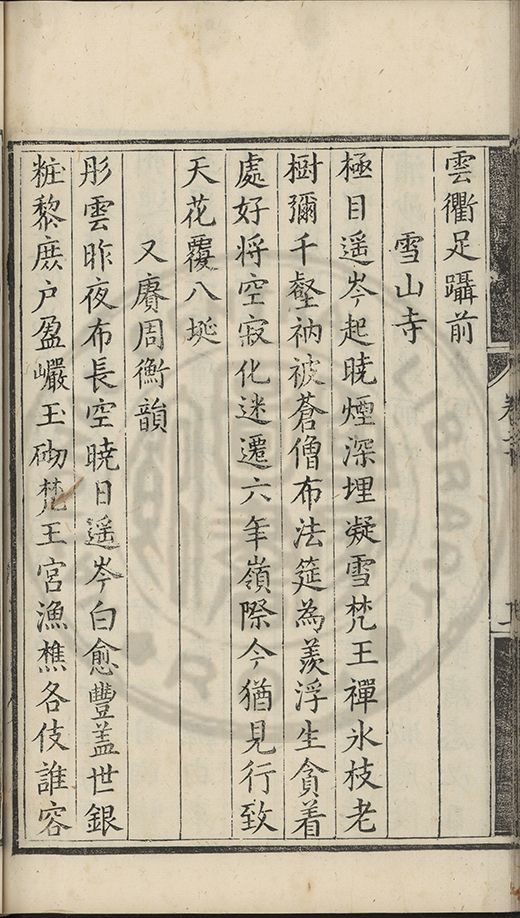 雲衢足躡前
雪山寺
極目遥岑起曉煙深埋凝雪梵王禪氷枝老
樹彌千壑衲被蒼僧布法筵為羨浮生貪着
處好将空寂化迷遷六年嶺際今猶見行致
天花覆八埏
又賡周衡韻
彤雲昨夜布長空曉日遥岑白愈豐盖世銀
粧黎庶户盈巗玉砌梵王宮漁樵各伎誰容